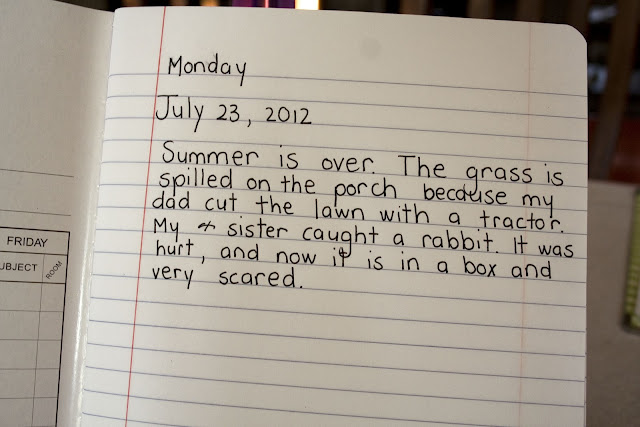 Monday
July 23, 2012
Summer is over. The grass is
spilled on the porch because my
dad cut the lawn with a tractor.
My sister caught a rabbit. It was
hurt, and now it is in a box and
very scared.
FRIDAY
UBJECT
ROOM